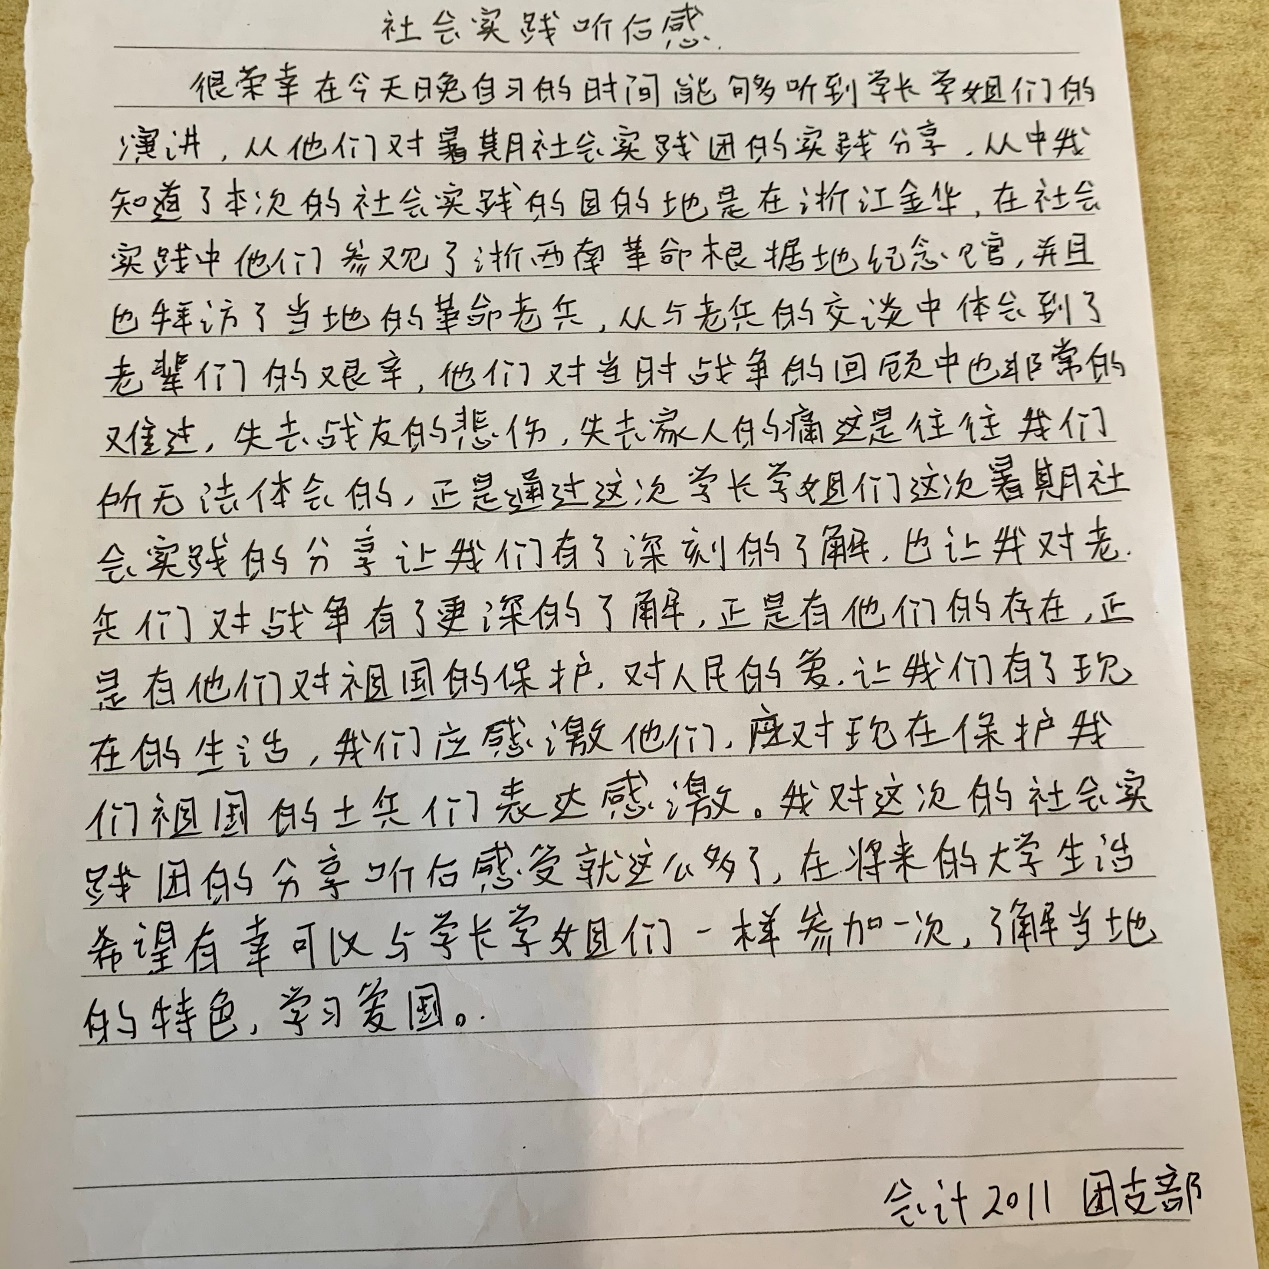 社会实践听后感
很荣幸在今天晚自习的时间能够听到学长学姐们的
演讲，从他们对暑期社会实践团的实践分享，从中我
知道了本次的社会实践的目的地是在浙江金华，在社会
实践中他们参观了浙西南革命根据地纪念馆，并且
也拜访了当地的革命老兵，从与老兵的交谈中体会到了
老辈们的艰辛，他们对当时战争的回顾中也非常的
难过，失去战友的悲伤，失去家人的痛这是往往我们
所无法体会的，正是通过这次学长学姐们这次暑期社
会实践的分享让我们有了深刻的了解，也让我对老
兵们对战争有了更深的了解，正是有他们的存在，正
是有他们对祖国的保护，对人民的爱，让我们有了现
在的生活，我们应感激他们，应对现在保护我
们祖国的士兵们表达感激。我对这次的社会实
践团的分享听后感受就这么多了，在将来的大学生活
希望有幸可以与学长学姐们一样参加一次，了解当地
的特色，学习爱国。
会计2011 团支部